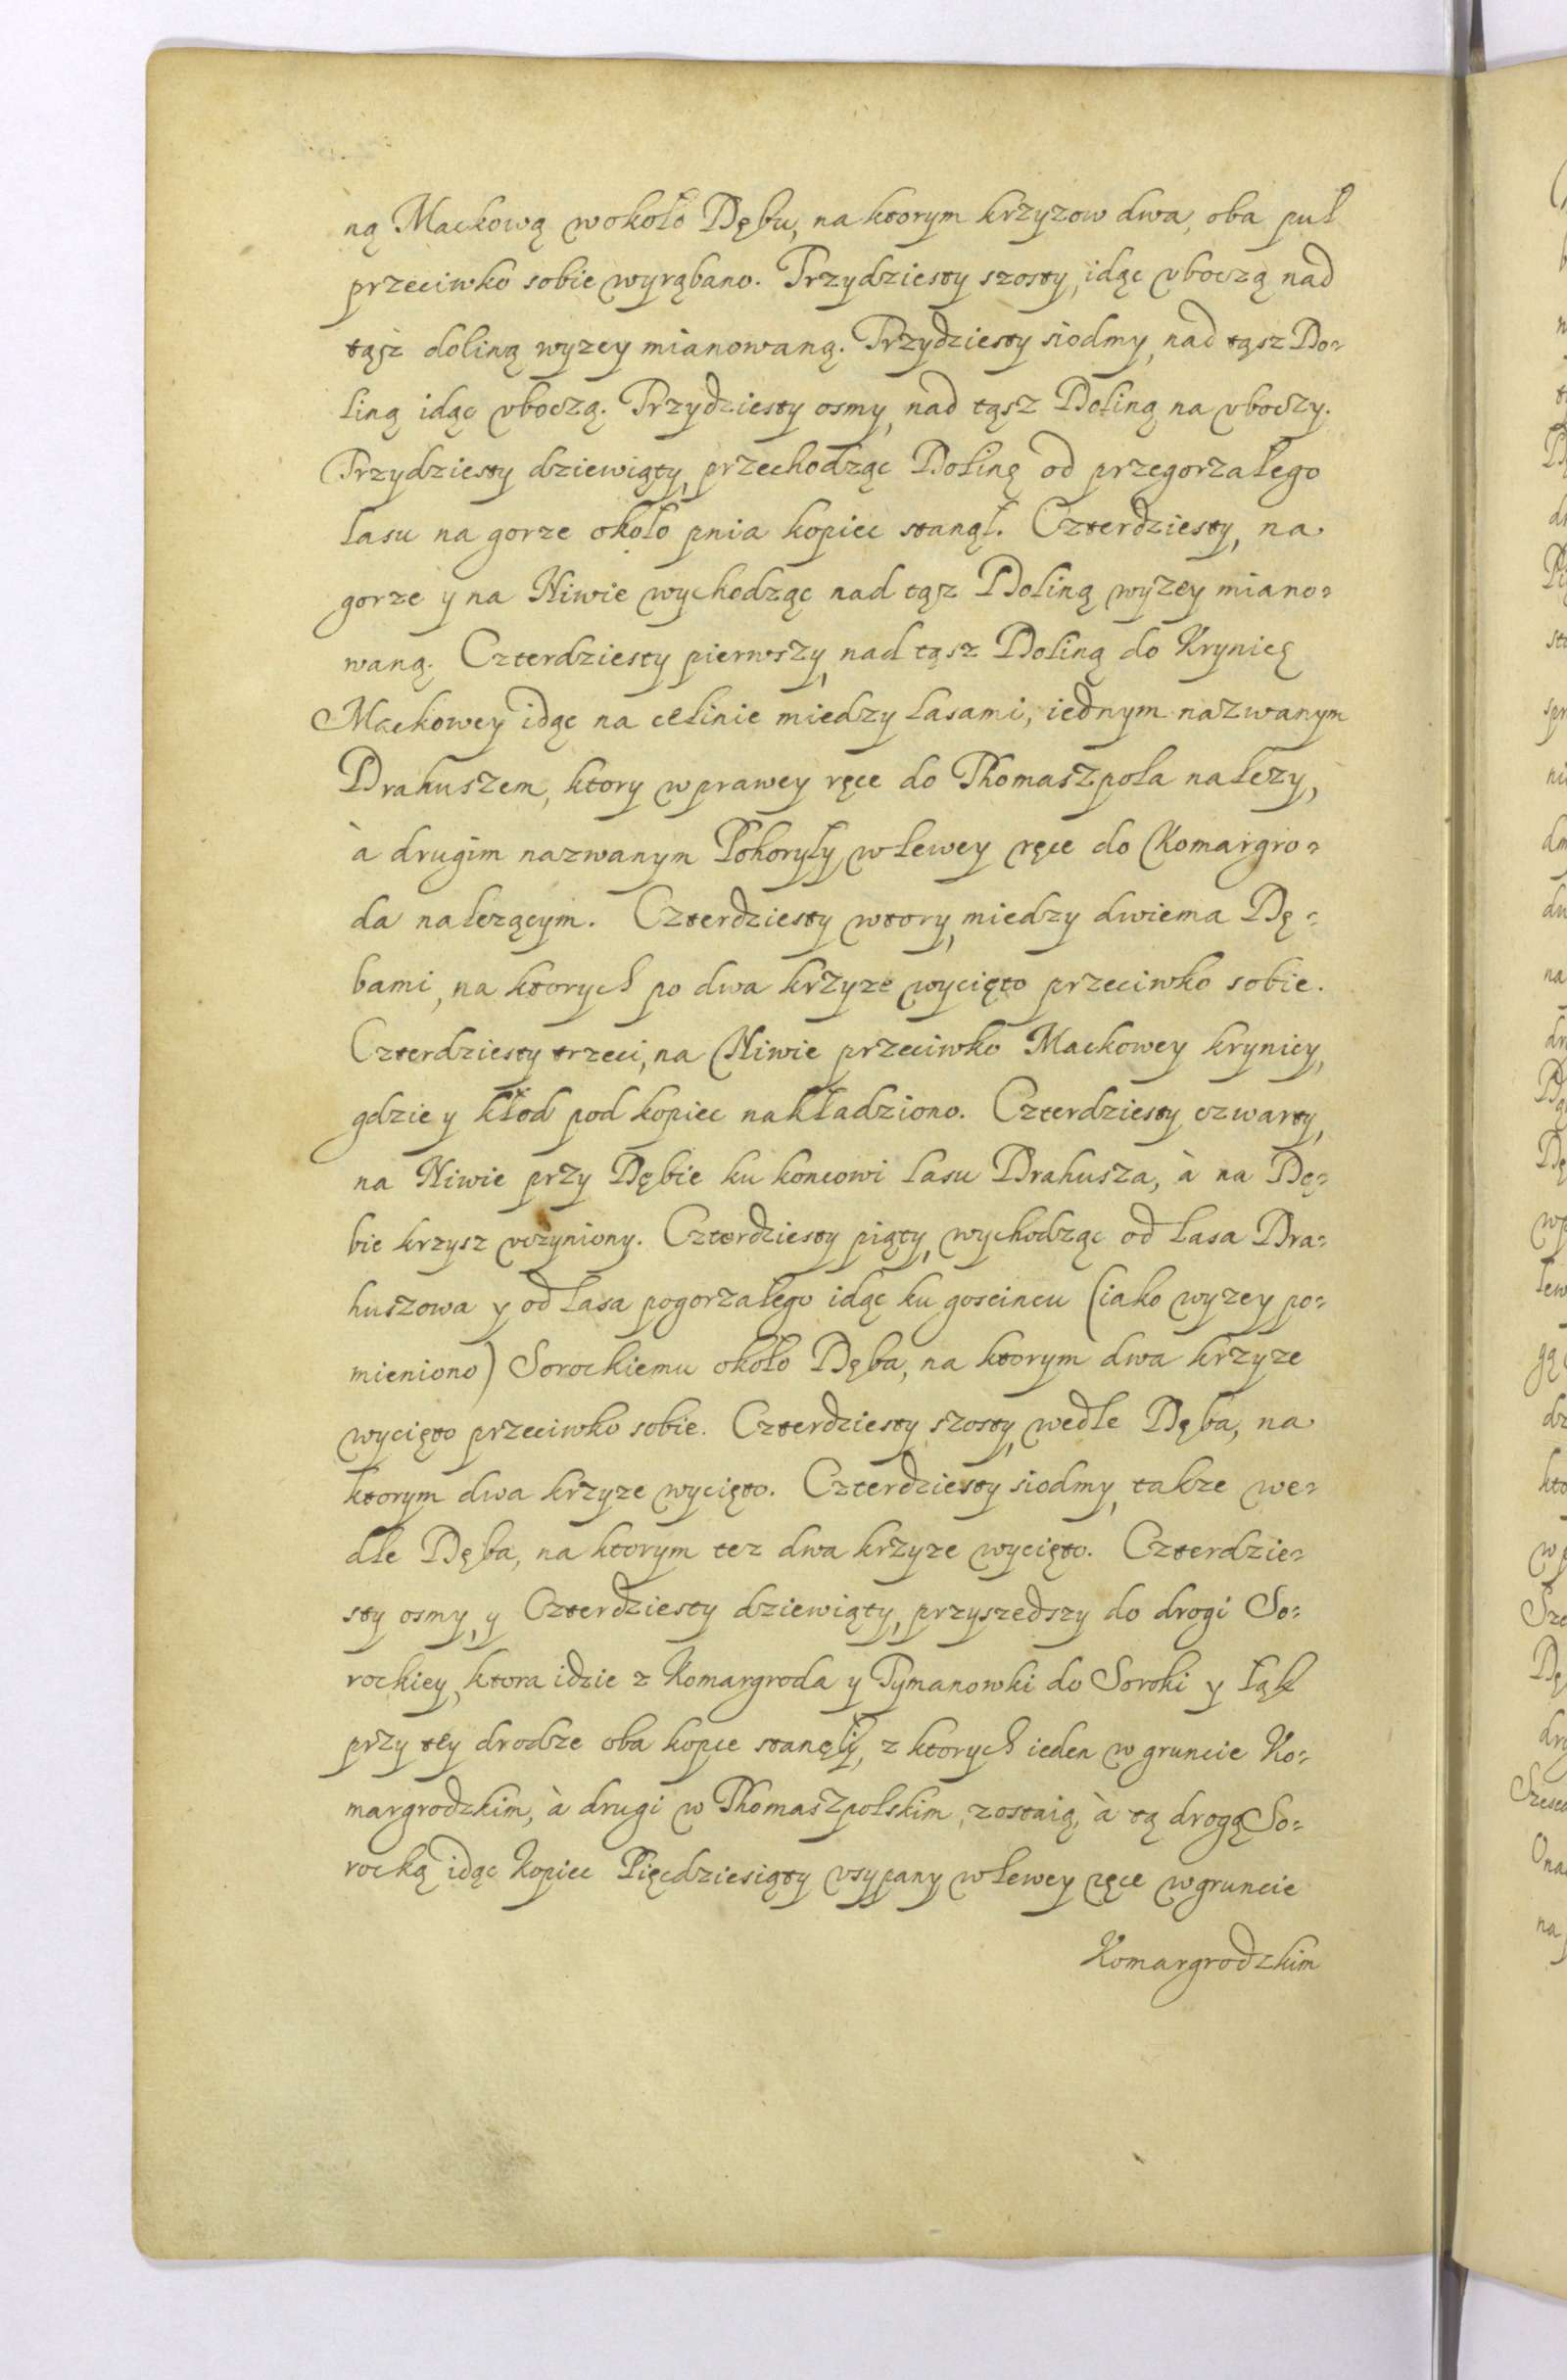 ną Mackową wokoło Dębu, na ktorym krzyzow dwa, oba puł
przeciwko sobie wyrąbano. Trzydziesty szosty, idąc vboczą nad
tąsz doliną wyzey mianowaną. Trzydziesty siodmy, nad tąsz Do=
liną idąc vboczą. Trzydziesty osmy, nad tąsz Doliną na vboczy.
Trzydziesty dziewiąty, przechodząc Dolinę od przegorzałego
lasu na gorze około pnia kopiec stanął. Czterdziesty, na
gorze y na Niwie wychodząc nad tąsz Doliną wyzey miano=
waną. Czterdziesty pierwszy, nad tąsz Doliną do Krynicę
Mackowey idąc na celinie miedzy lasami, iednym nazwanym
Drahuszem, ktory w prawey ręce do Thomaszpola nalezy,
à drugim nazwanym Pohoryły w lewey ręce do Komargro=
da nalezącym. Czterdziesty wtory, miedzy dwiema Dę=
bami, na ktorych po dwa krzyze wycięto przeciwko sobie.
Czterdziesty trzeci, na Niwie przeciwko Mackowey krynicy,
gdzie y kłod pod kopiec nakładziono. Czterdziesty czwarty,
na Niwie przy Dębie ku koncowi lasu Drahusza, à na Dę=
bie krzysz vczyniony. Czterdziesty piąty, wychodząc od lasa Dra=
huszowa y od lasa pogorzałego idąc ku goscincu (iako wyzey po=
mieniono) Sorockiemu około Dęba, na ktorym dwa krzyze
wycięto przeciwko sobie. Czterdziesty szosty, wedle Dęba, na
ktorym dwa krzyze wycięto. Czterdziesty siodmy, takze we=
dle Dęba, na ktorym tez dwa krzyze wycięto. Czterdzie=
sty osmy, y Czterdziesty dziewiąty, przyszedszy do drogi So=
rockiey, ktora idzie z Komargroda y Tymanowki do Soroki y łąk
przy tey drodze oba kopce stanęli, z ktorych ieden w gruncie Ko=
margrodzkim, à drugi w Thomaszpolskim zostaią, à tą drogą So=
rocką idąc Kopiec Pięcdziesiąty vsypany w lewey ręce w gruncie
Komargrodzkim